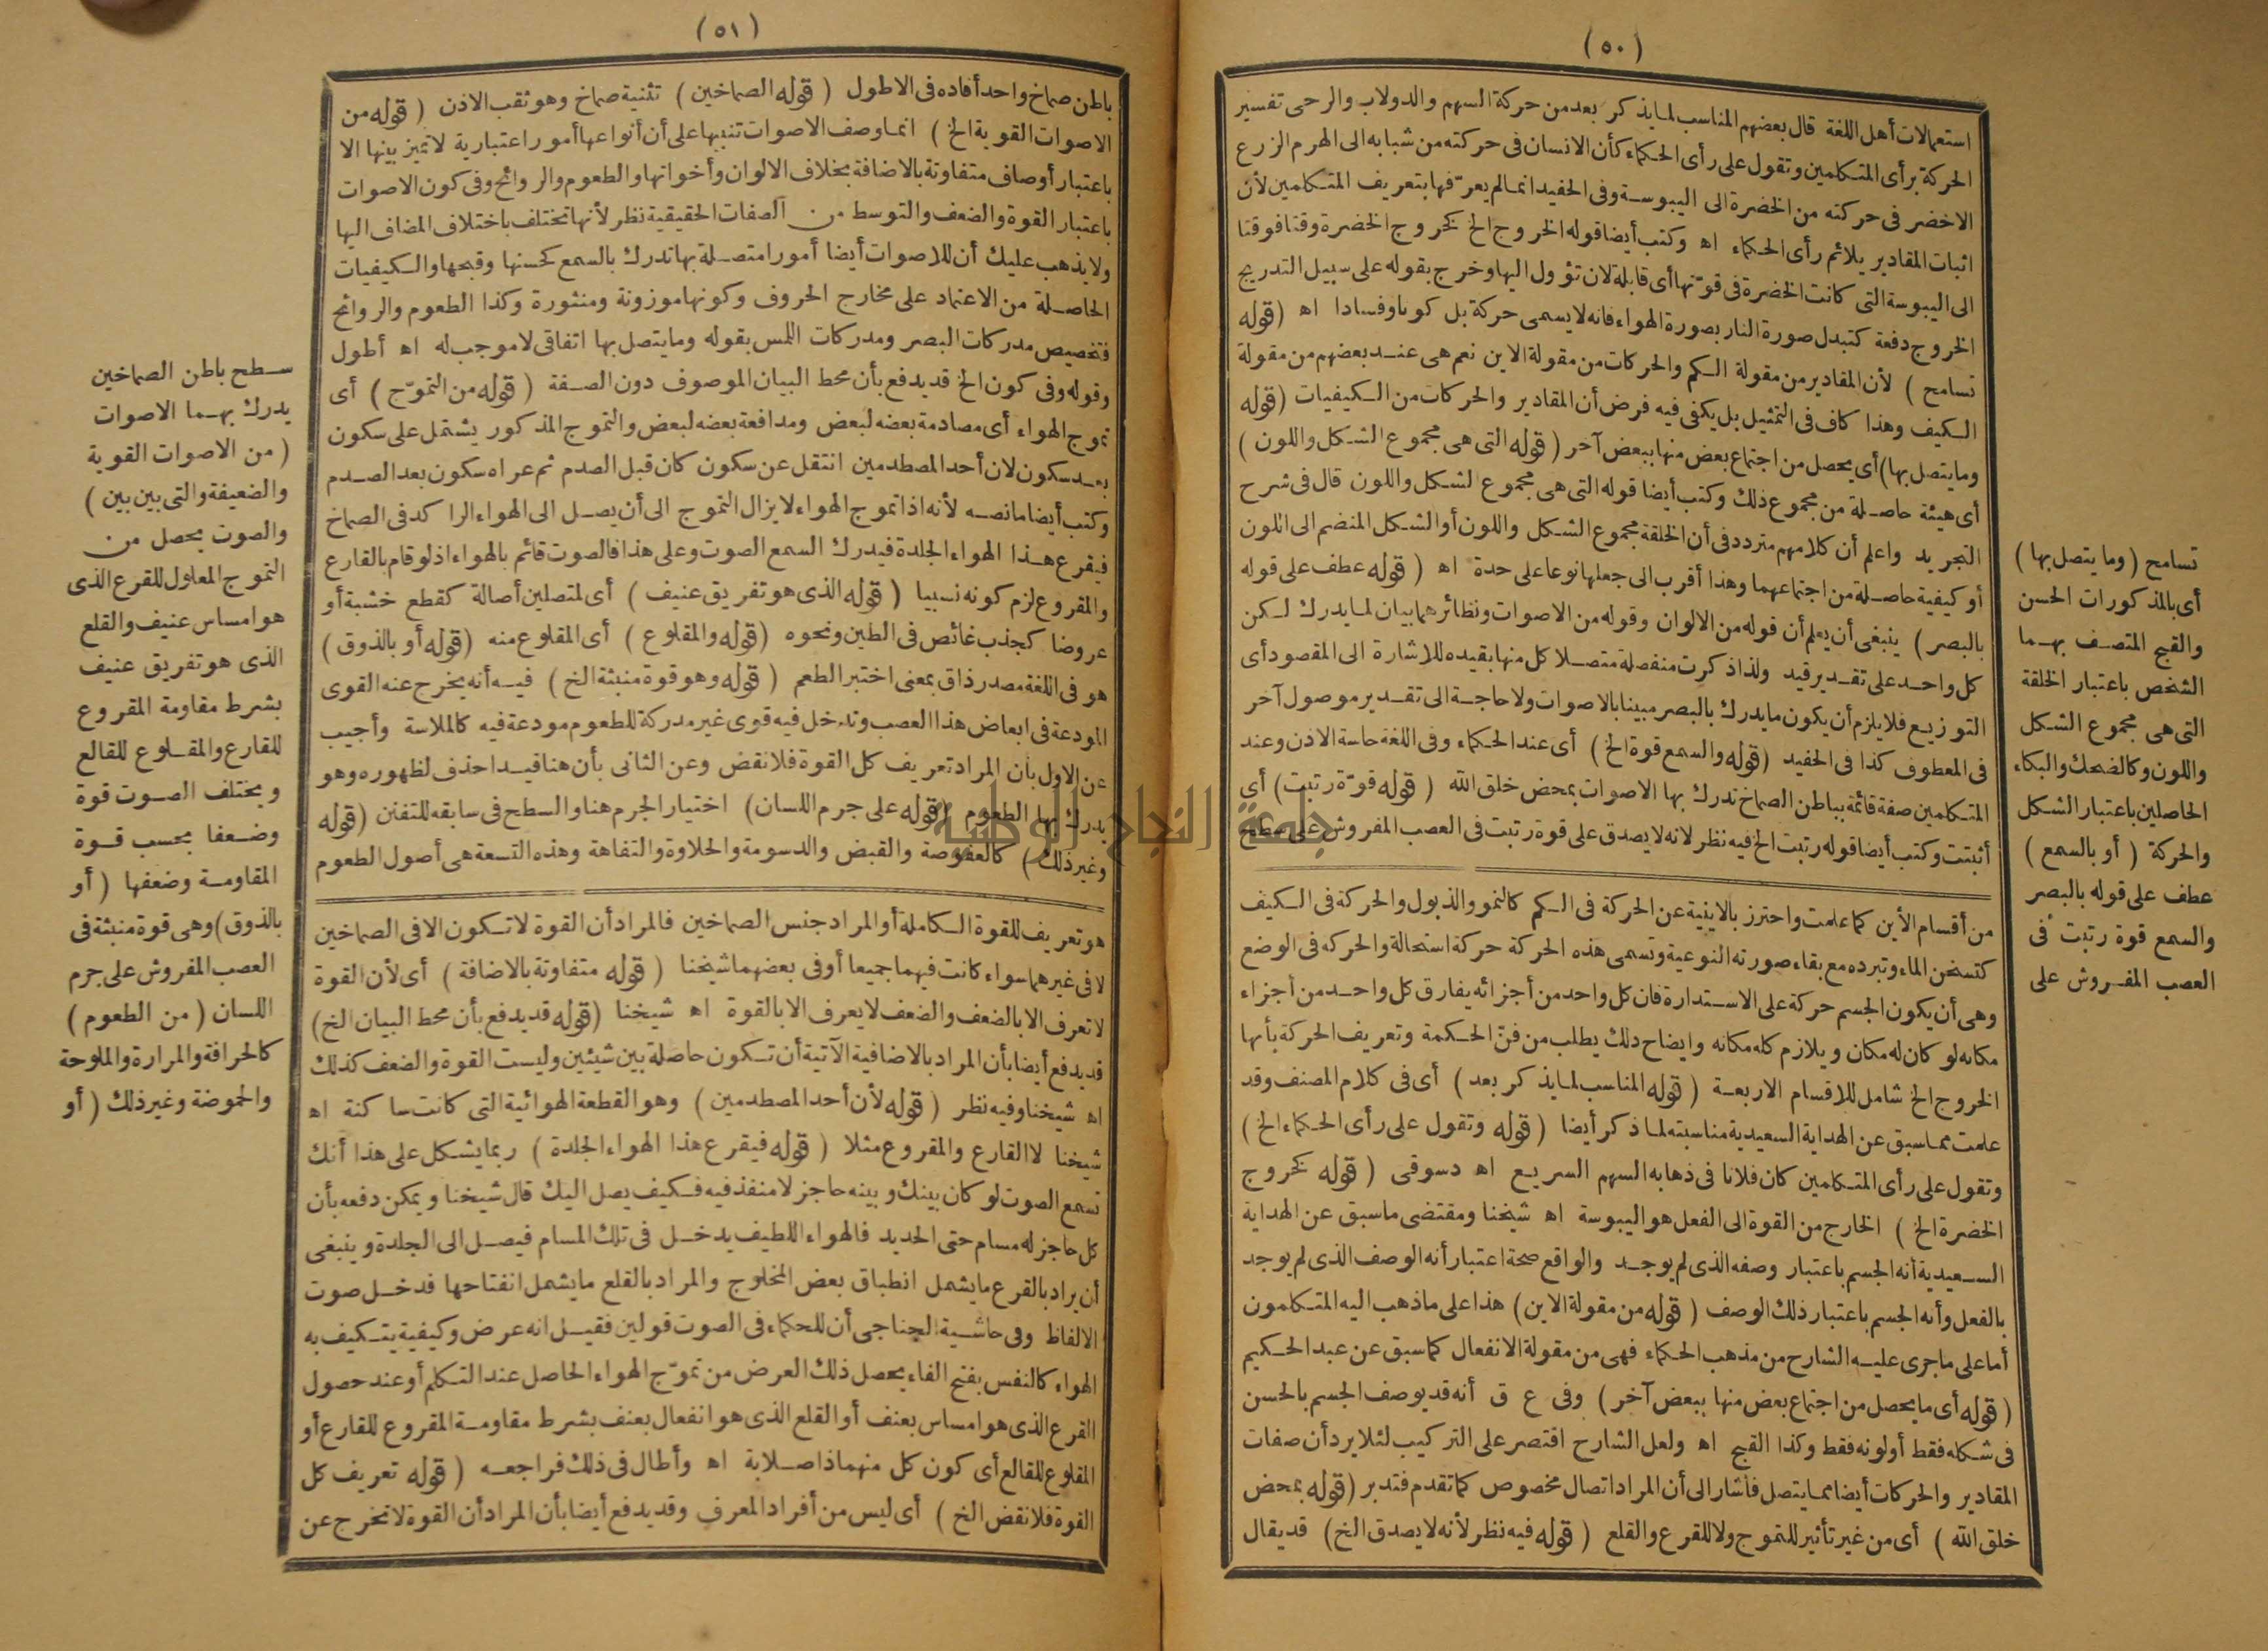 (٥٠)
استعمالات أهل اللغة قال بعضهم المناسب لما يذكر بعد من حركة السهم والدولاب والرحى تفسير
الحركة برأى المتكلمين وتقول على رأى الحكماء كأن الانسان فى حركته من شبابه الى الهرم الزرع
الاخضر فى حركته من الخضرة الى اليبوسة وفى الحفيد انما لم يعرّفها بتعريف المتكلمين لأن
اثبات المقادير يلائم رأى الحكماء اه وكتب أيضا قوله الخروج الخ كخروج الخضرة وقتا فوقتا
الى اليبوسة التى كانت الخضرة فى قوّتها أى قابلة لان تؤول اليها وخرج بقوله على سبيل التدريج
الخروج دفعة كتبدل صورة النار بصورة الهواء فانه لا يسمى حركة بل كونا وفسادا اه (قوله
تسامح) لأن المقادير من مقولة الكم والحركات من مقولة الاين نعم هى عند بعضهم من مقولة
الكيف وهذا كاف فى التمثيل بل يكفى فيه فرض أن المقادير والحركات من الكيفيات (قوله
وما يتصل بها) أى يحصل من اجتماع بعض منها ببعض آخر (قوله التى هى مجموع الشكل واللون)
أى هيئة حاصلة من مجموع ذلك وكتب أيضا قوله التى هى مجموع لشكل واللون قال فى شرح
التجريد واعلم أن كلامهم متردد فى أن الخلقة مجموع الشكل واللون أو الشكل المنضم الى اللون
أو كيفية حاصلة من اجتماعهما وهذا أقرب الى جعلها نوعا على حدة اه (قوله عطف على قوله
بالبصر) ينبغى أن يعلم أن قوله من الالوان وقوله من الاصوات ونظائرهما بيان لما يدرك لكن
كل واحد على تقدير قيد ولذا ذكرت منفصلة متصلا كل منها بقيده للاشارة الى المقصود أى
التوزيع فلا يلزم أن يكون ما يدرك بالبصر مبينا بالاصوات ولا حاجة الى تقدير موصول آخر
فى المعطوف كذا فى الحفيد (قوله والسمع قوة الخ) أى عند الحكماء وفى اللغة حاسة الاذن وعند
المتكلمين صفة قائمة بباطن الصماخ تدرك بها الاصوات بمحض خلق الله (قوله قوّة رتبت) أى
أثبتت وكتب أيضا قوله رتبت الخ فيه نظر لانه لا يصدق على قوة رتبت فى العصب المفروش على سطح
من أقسام الأين كما علمت واحترز بالاينية عن الحركة فى الكم كالنمو والذبول والحركة فى الكيف
كتسخن الماء وتبرده مع بقاء صورته النوعية وتسمى هذه الحركة حركة استحالة والحركة فى الوضع
وهى أن يكون الجسم حركة على الاستدارة فان كل واحد من أجزائه يفارق كل واحد من أجزاء
مكانه لو كان له مكان ويلازم كله مكانه وايضاح ذلك يطلب من فنّ الحكمة وتعريف الحركة بأنها
الخروج الخ شامل للاقسام الاربعة (قوله المناسب لما يذكر بعد) أى فى كلام المصنف وقد
علمت مما سبق عن الهداية السعيدية مناسبته لما ذكر أيضا (قوله وتقول على رأى الحكماء الخ)
وتقول على رأى المتكلمين كان فلانا فى ذهابه السهم السريع اه دسوقى (قوله كخروج
الخضرة الخ) الخارج من القوة الى الفعل هو اليبوسة اه شيخنا ومقتضى ما سبق عن الهداية
السعيدية أنه الجسم باعتبار وصفه الذى لم يوجد والواقع صحة اعتبار أنه الوصف الذى لم يوجد
بالفعل وأنه الجسم باعتبار ذلك الوصف (قوله من مقولة الاين) هذا على ما ذهب اليه المتكلمون
أما على ما جرى عليه الشارح من مذهب الحكماء فهى من مقولة الانفعال كما سبق عن عبد الحكيم
(قوله أى ما يحصل من اجتماع بعض منها ببعض آخر) وفى ع ق أنه قد يوصف الجسم بالحسن
فى شكله فقط أو لونه فقط وكذا القبح اه ولعل الشارح اقتصر على التركيب لئلا يرد أن صفات
المقادير والحركات أيضا مما يتصل فأشار الى أن المراد اتصال مخصوص كما تقدم فتدبر (قوله بمحض
خلق الله) أى من غير تأثير للتموج ولا للقرع والقلع (قوله فيه نظر لأنه لا يصدق الخ) قد يقال
تسامح (وما يتصل بها)
أى بالمذكورات الحسن
والقبح المتصف بهما
الشخص باعتبار الخلقة
التى هى مجموع الشكل
واللون وكالضحك والبكاء
الحاصلين باعتبار الشكل
والحركة (أو بالسمع)
عطف على قوله بالبصر
والسمع قوة رتبت فى
العصب المفروش على
(٥١)
باطن صماخ واحد أفاده فى الاطول (قوله الصماخين) تثنية صماخ وهو ثقب الاذن (قوله من
الاصوات القوية الخ) انما وصف الاصوات تنبيها على أن أنواعها أمور اعتبارية لا تميز بينها الا
باعتبار أوصاف متفاوتة بالاضافة بخلاف الالوان وأخواتها والطعوم والروائح وفى كون الاصوات
باعتبار القوة والضعف والتوسط من الصفات الحقيقية نظر لأنها تختلف باختلاف المضاف اليها
ولا يذهب عليك أن للاصوات أيضا أمورا متصلة بها تدرك بالسمع كحسنها وقبحها والكيفيات
الحاصلة من الاعتماد على مخارج الحروف وكونها موزونة ومنثورة وكذا الطعوم والروائح
فتخصيص مدركات البصر ومدركات اللمس بقوله وما يتصل بها اتفاقى لا موجب له اه أطول
وقوله وفى كون الخ قد يدفع بأن محط البيان الموصوف دون الصفة (قوله من التموّج) أى
تموج الهواء أى مصادمة بعضه لبعض ومدافعة بعضه لبعض والتموج المذكور يشتمل على سكون
بعد سكون لان أحد المصطدمين انتقل عن سكون كان قبل الصدم ثم عراه سكون بعد الصدم
وكتب أيضا ما نصه لأنه اذا تموج الهواء لا يزال التموج الى أن يصل الى الهواء الراكد فى الصماخ
فيقرع هذا الهواء الجلدة فيدرك السمع الصوت وعلى هذا فالصوت قائم بالهواء اذ لو قام بالقارع
والمقروع لزم كونه نسبيا (قوله الذى هو تفريق عنيف) أى لمتصلين أصالة كقطع خشبة أو
عروضا كجذب غائص فى الطين ونحوه (قوله والمقلوع) أى المقلوع منه (قوله أو بالذوق)
هو فى اللغة مصدر ذاق بمعنى اختبر الطعم (قوله وهو قوة منبثة الخ) فيه أنه يخرج عنه القوى
المودعة فى ابعاض هذا العصب وتدخل فيه قوى غير مدركة للطعوم مودعة فيه كالملاسة وأجيب
عن الاول بأن المراد تعريف كل القوة فلا نقض وعن الثانى بأن هنا قيدا حذف لظهوره وهو
يدرك بها الطعوم (قوله على جرم اللسان) اختيار الجرم هنا والسطح فى سابقه للتفنن (قوله
وغير ذلك) كالعفوصة والقبض والدسومة والحلاوة والتفاهة وهذه التسعة هى أصول الطعوم
هو تعريف للقوة الكاملة أو المراد جنس الصماخين فالمراد أن القوة لا تكون الا فى الصماخين
لا فى غيرهما سواء كانت فيهما جميعا أو فى بعضهما شيخنا (قوله متفاوتة بالاضافة) أى لأن القوة
لا تعرف الا بالضعف والضعف لا يعرف الا بالقوة اه شيخنا (قوله قد يدفع بأن محط البيان الخ)
قد يدفع أيضا بأن المراد بالاضافية الآتية أن تكون حاصلة بين شيئين وليست القوة والضعف كذلك
اه شيخنا وفيه نظر (قوله لأن أحد المصطدمين) وهو القطعة الهوائية التى كانت ساكنة اه
شيخنا لا القارع والمقروع مثلا (قوله فيقرع هذا الهواء الجلدة) ربما يشكل على هذا أنك
تسمع الصوت لو كان بينك وبينه حاجز لا منفذ فيه فكيف يصل اليك قال شيخنا ويمكن دفعه بأن
كل حاجز له مسام حتى الحديد فالهواء اللطيف يدخل فى تلك المسام فيصل الى الجلدة وينبغى
أن يراد بالقرع ما يشمل انطباق بعض المخارج والمراد بالقلع ما يشمل انفتاحها فدخل صوت
الالفاظ وفى حاشية الچناجى أن للحكماء فى الصوت قولين فقيل انه عرض وكيفية يتكيف به
الهواء كالنفس بفتح الفاء يحصل ذلك العرض من تموّج الهواء الحاصل عند التكلم أو عند حصول
القرع الذى هو امساس بعنف أو القلع الذى هو انفعال بعنف بشرط مقاومة المقروع للقارع أو
المقلوع للقالع أى كون كل منهما ذا صلابة اه وأطال فى ذلك فراجعه (قوله تعريف كل
القوة فلا نقض الخ) أى ليس من أفراد المعرف وقد يدفع أيضا بأن المراد أن القوة لا تخرج عن
سطح باطن الصماخين
يدرك بهما الاصوات
(من الاصوات القوية
والضعيفة والتى بين بين)
والصوت يحصل من
التموج المعلول للقرع الذى
هو امساس عنيف والقلع
الذى هو تفريق عنيف
بشرط مقاومة المقروع
للقارع والمقلوع للقالع
ويختلف الصوت قوة
وضعفا بحسب قوة
المقاومة وضعفها (أو
بالذوق) وهى قوة منبثة فى
العصب المفروش على جرم
اللسان (من الطعوم)
كالحرافة والمرارة والملوحة
والحموضة وغير ذلك (أو
جامعة النجاح الوطنية